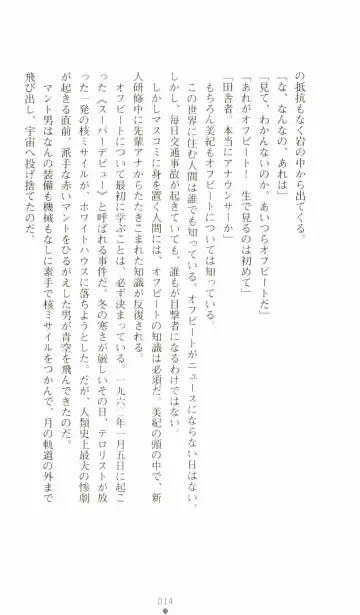 の抵抗もなく岩の中から出てくる。
「な、なんなの、あれは」
「見て、わかんないのか。あいつらオフビートだ」
「あれがオフビート！　生で見るのは初めて」
「田舎者。本当にアナウンサーか」
　もちろん美紀もオフビートについては知っている。
　この世界に住む人間は誰でも知っている。オフビートがニュースにならない日はない。
しかし、毎日交通事故が起きていても、誰もが目撃者になるわけではない。
　しかしマスコミに身を置く人間には、オフビートの知識は必須だ。美紀の頭の中で、新
人研修中に先輩アナからたたきこまれた知識が反復される。
　オフビートについて最初に学ぶことは、必ず決まっている。一九六〇年一月五日に起こ
った《スーパーデビュー》と呼ばれる事件だ。冬の寒さが厳しいその日、テロリストが放
った一発の核ミサイルが、ホワイトハウスに落ちようとした。だが、人類史上最大の惨劇
が起きる直前、派手な赤いマントをひるがえした男が青空を飛んできたのだ。
　マント男はなんの装備も機械もなしに素手で核ミサイルをつかんで、月の軌道の外まで
飛び出し、宇宙へ投げ捨てたのだ。
014